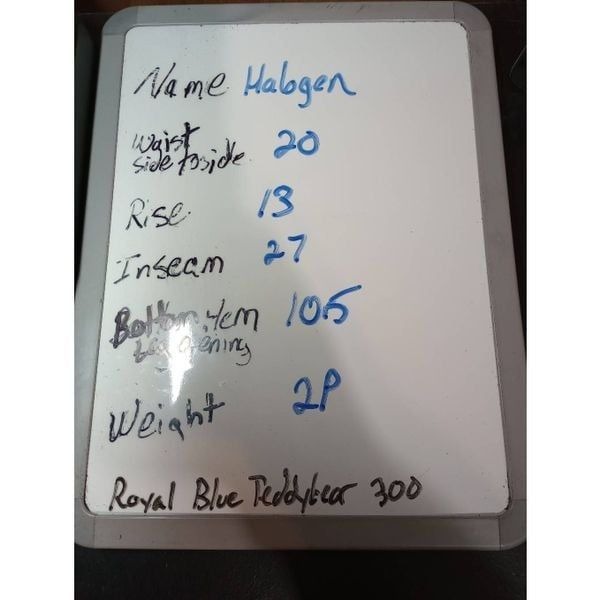 Name Halogen
Waist 20
side to side
Rise 13
Inseam 27
Bottom 105
Leg opening
Weight 2P
Royal Blue Teddybear 300